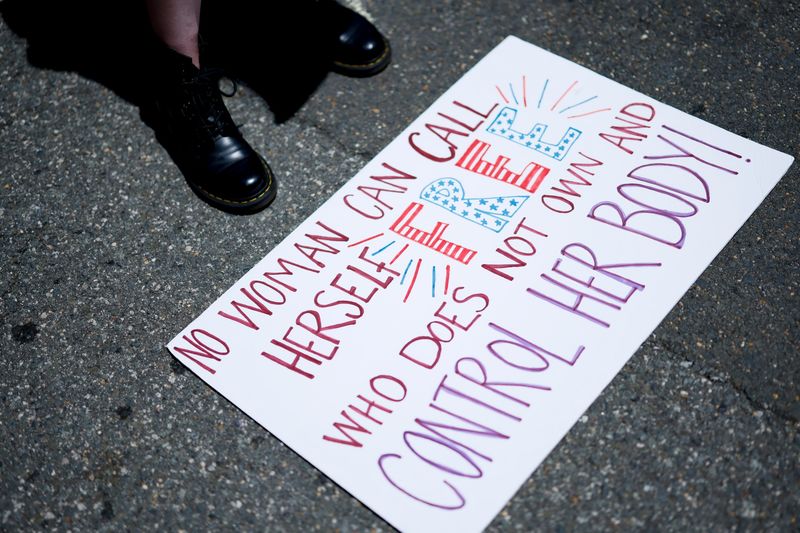 NO WOMAN CAN CALL
HERSELF FREE
WHO DOES NOT OWN AND
CONTROL HER BODY!